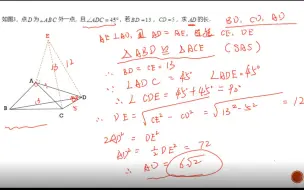 如图3，点D为△ABC外一点，且∠ADC=45°，若BD=13，CD=5，求AD的长．
BD, CD, AD
AE⊥AD, 且AD=AE, 连接CE, DE
△ABD≌△ACE (SAS)
∴ BD=CE=13
∵ ∠ADC=45° ∠ADE=45°
∴ ∠CDE=45°+45°=90°
∴ DE=√CE²-CD²=√13²-5²=12
2AD²=DE²
AD²=½DE²=72
∴ AD=6√2
E
13
12
A
B
C
D
5